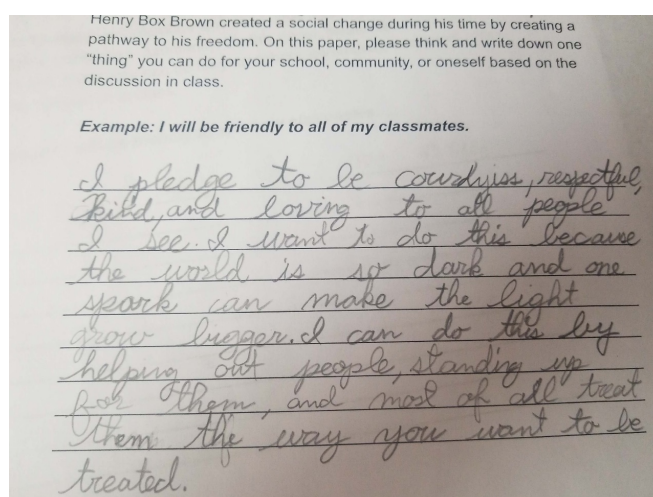 Henry Box Brown created a social change during his time by creating a
pathway to his freedom. On this paper, please think and write down one
"thing" you can do for your school, community, or oneself based on the
discussion in class.
Example: I will be friendly to all of my classmates.
I pledge to be courdyiss, respectful,
Kind, and loving to all people
I see. I want to do this because
the world is so dark and one
spark can make the light
grow bigger. I can do this by
helping out people, standing up
for them, and most of all treat
them the way you want to be
treated.